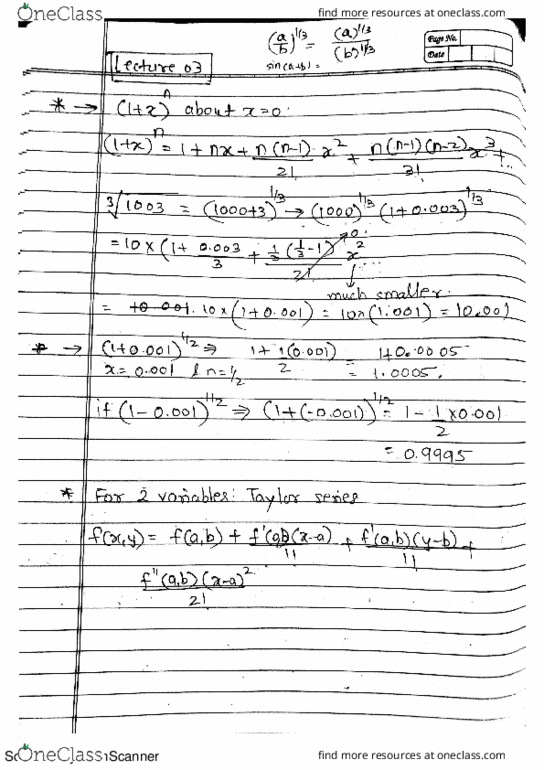 OneClass find more resources at oneclass.com
(a/b)^1/3 = (a)^1/3/(b)^1/3
Page No.
Date
sin(a+b) =
Lecture 03
* → (1+x)^n about x=0.
(1+x)^n = 1 + nx + n(n-1)/2! · x^2 + n(n-1)(n-2)/3! x^3 + ...
3√1003 = (1000+3)^1/3 → (1000)^1/3 (1+0.003)^1/3
= 10 × (1 + 0.003/3 + 1/3(1/3-1)/2! x^2 ... → 0.
much smaller.
= 10.001. 10×(1+0.001) = 10×(1.001) = 10.001
* → (1+0.001)^1/2 ⇒ 1 + 1(0.001)/2 = 1+0.0005
x = 0.001 & n=1/2 = 1.0005.
if (1-0.001)^1/2 ⇒ (1+(-0.001))^1/2 = 1 - 1/2 × 0.001
= 0.9995
* For 2 variables: Taylor series
f(x,y) = f(a,b) + f'(a,b)(x-a)/1! + f'(a,b)(y-b)/1! +
f''(a,b)(x-a)^2/2!
OneClass Scanner find more resources at oneclass.com